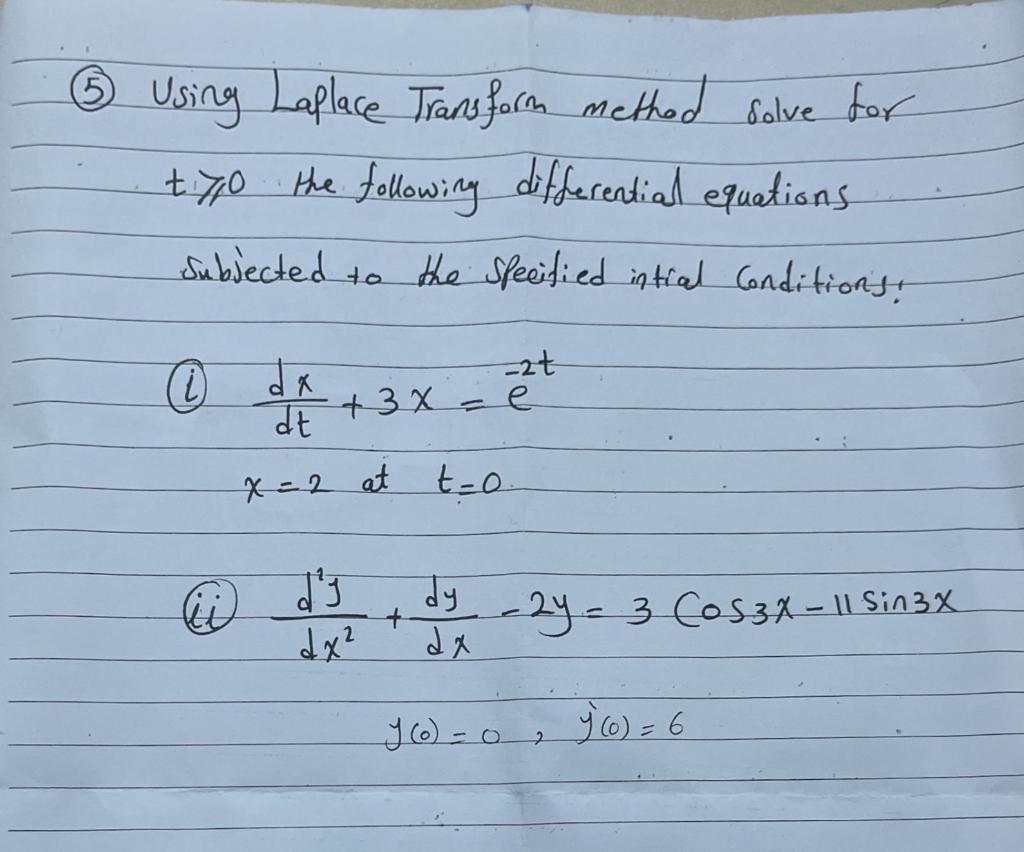 ⑤ Using Laplace Transform method solve for
t ⩾ 0 the following differential equations
Subjected to the specified intial Conditions:
ⓘ dx/dt + 3x = e^-2t
x = 2 at t = 0
ⓘⓘ d²y/dx² + dy/dx - 2y = 3 Cos3x - 11 Sin3x
y(0) = 0 , y'(0) = 6